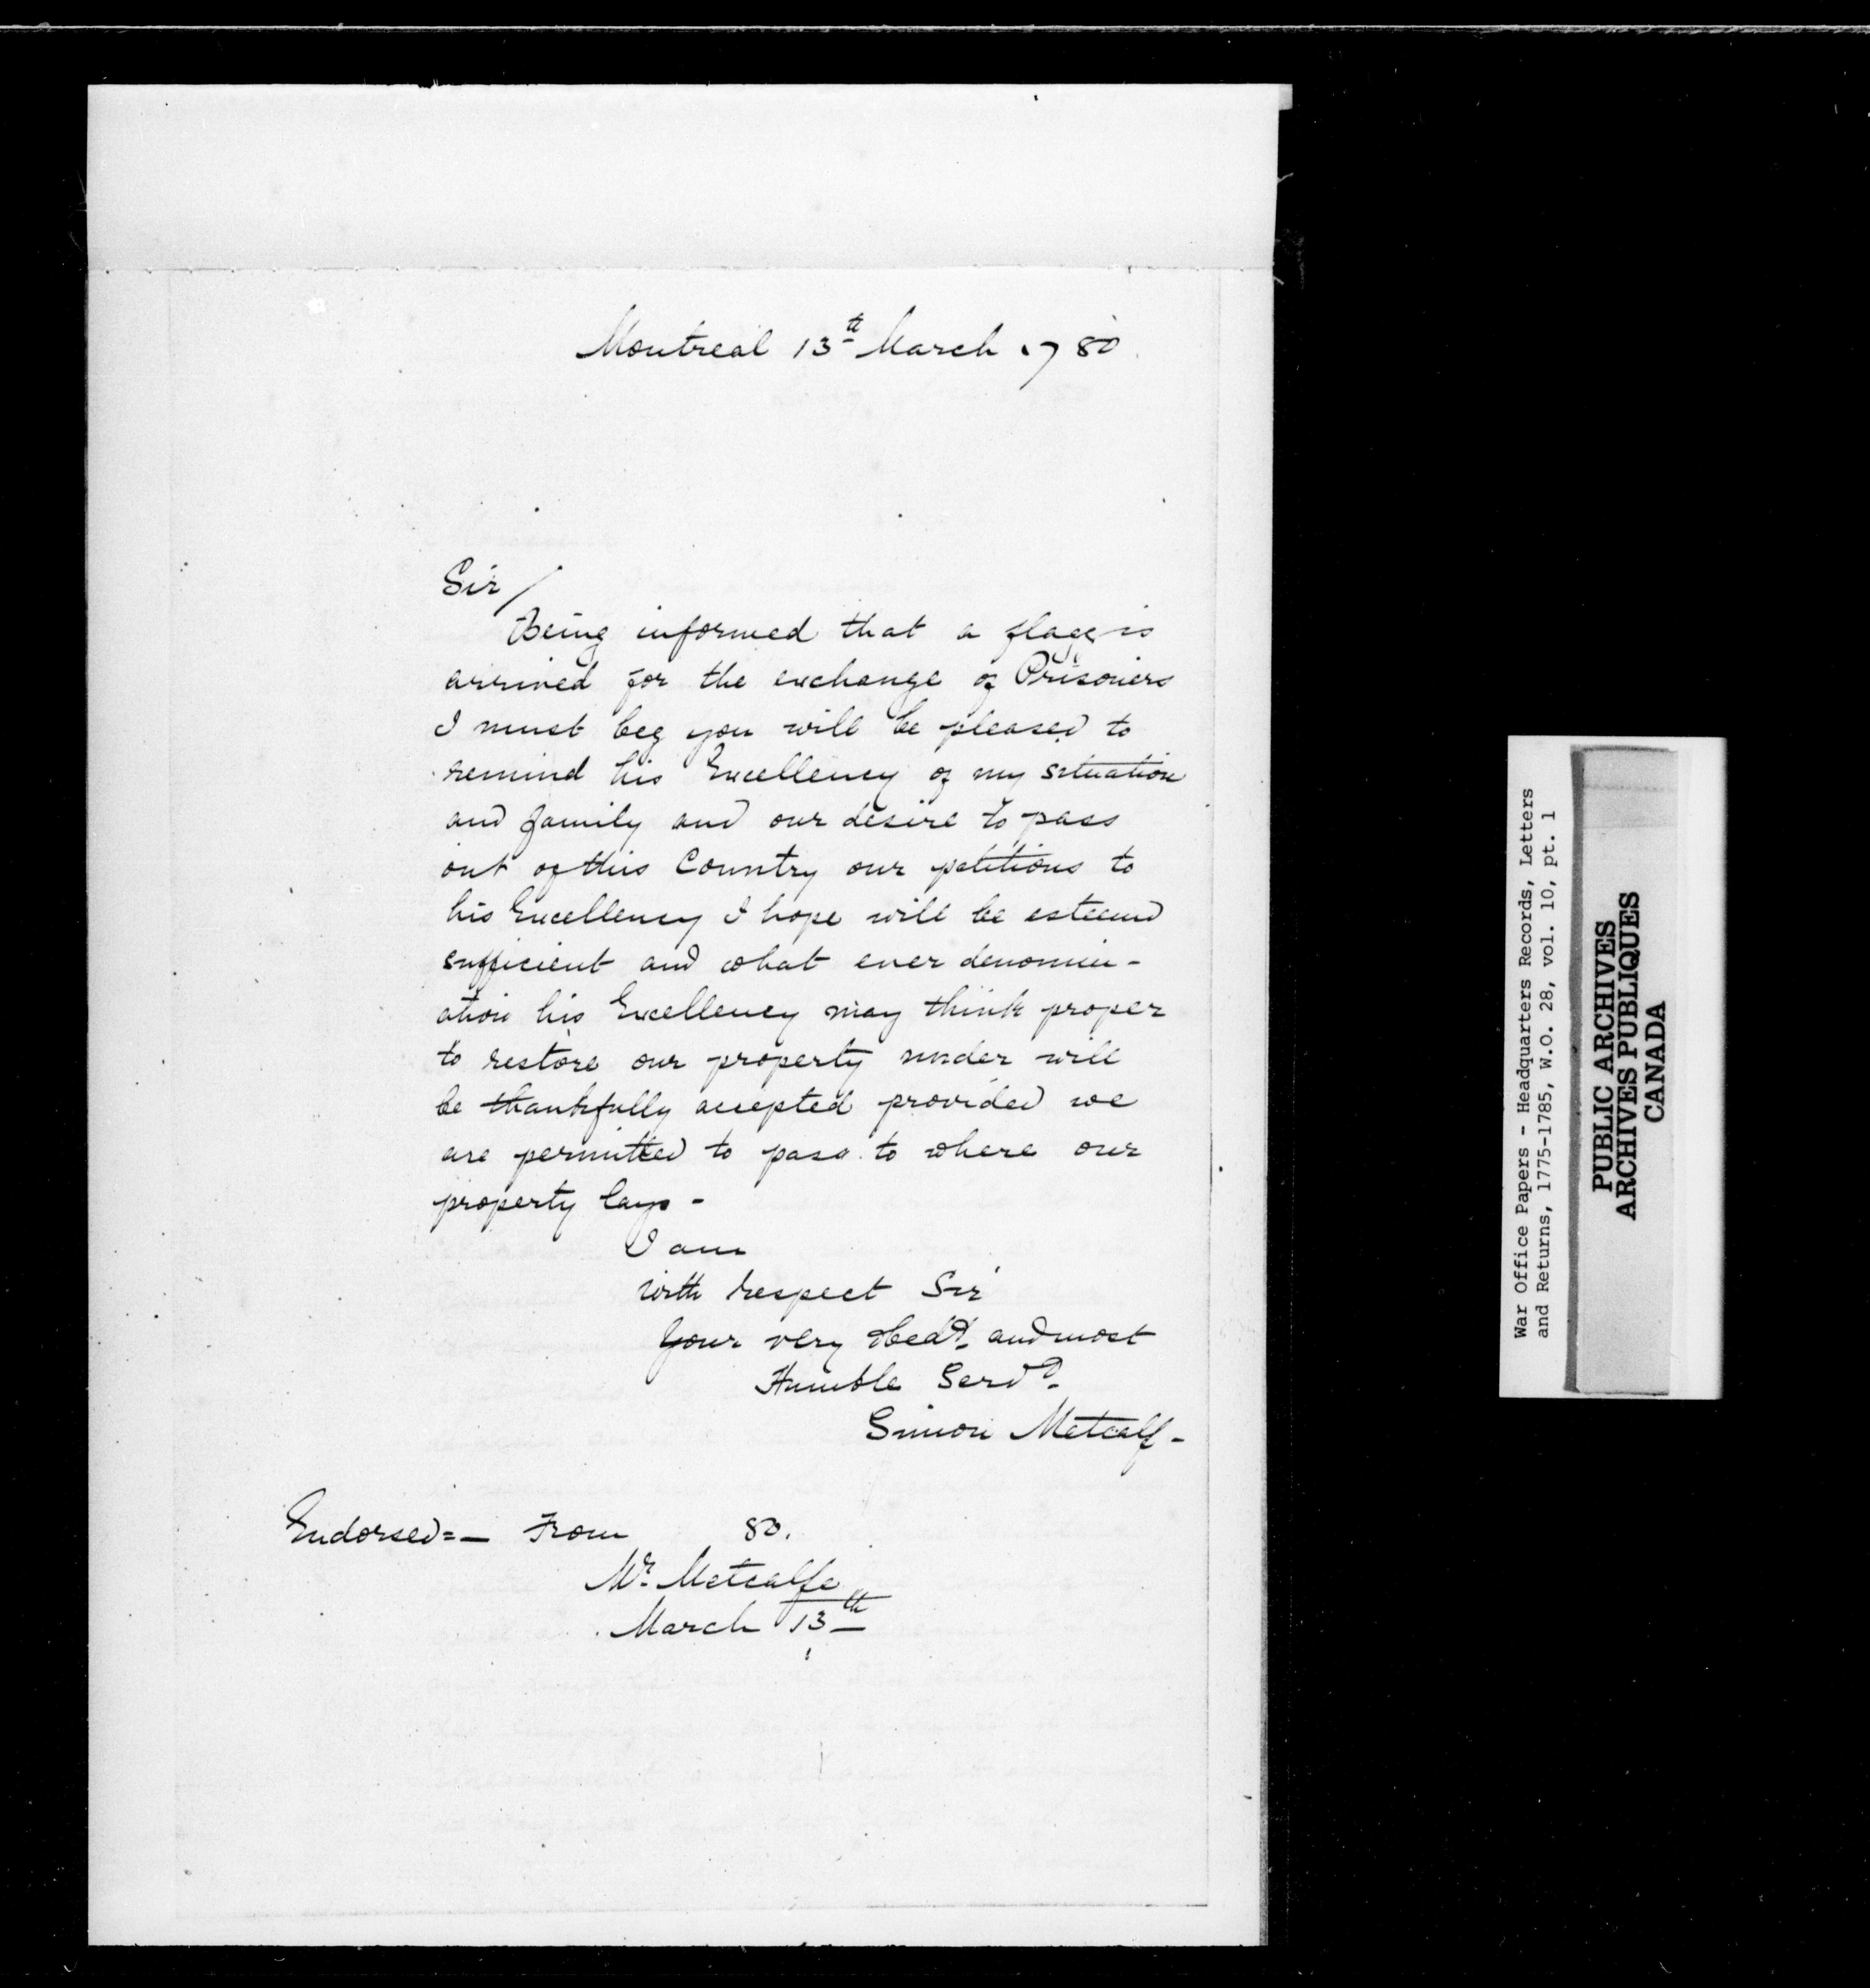 Montreal 13th March 1780.
Sir/
Being informed that a flagg is
arrived for the exchange of Prisoners
I must beg you will be pleased to
remind his Excellency of my situation
and family and our desire to pass
out of this Country our petitions to
his Excellency I hope will be esteemd
sufficient and what ever denomin-
ation his Excellency may think proper
to restore our property under will
be thankfully accepted provided we
are permitted to pass to where our
property lays -
I am
with respect Sir
Your very obedt. and most
Humble Servt.
Simon Metcalf -
Endorsed =- From 80.
Mr. Metcalfe
March 13th
War Office Papers - Headquarters Records, Letters
and Returns, 1775-1785, W.O. 28, vol. 10, pt. 1
PUBLIC ARCHIVES
ARCHIVES PUBLIQUES
CANADA